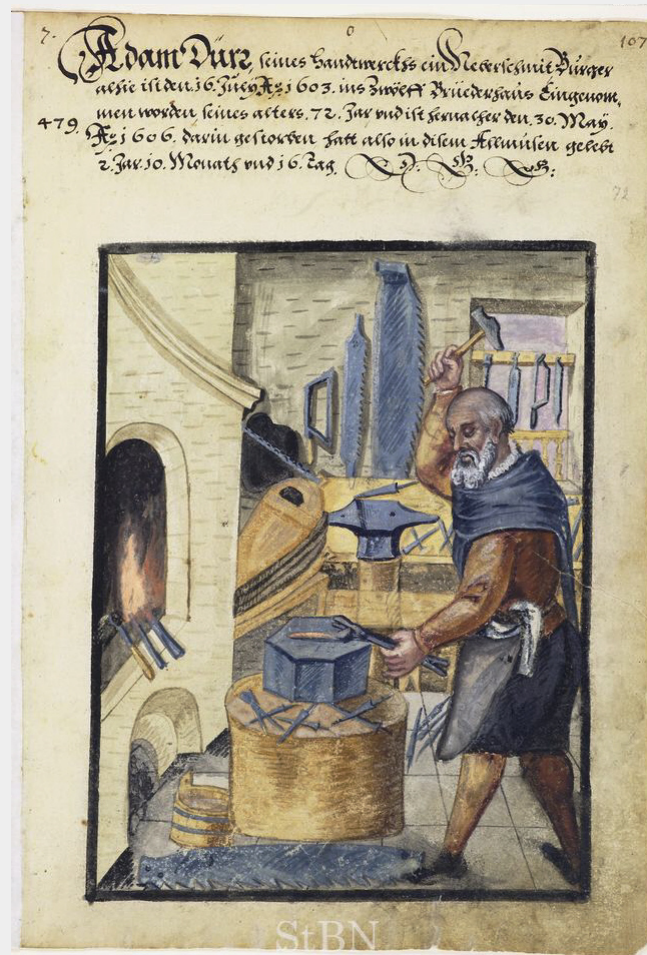 7. 0 107
Adam Dürr, seines Handtwerckhs ein Neberschmit Burger
alhie ist den 16. July Ao 1603. ins Zwölff Brüederhaus Eingenom„
men worden, seines alters. 72. Jar vnd ist hernacher den. 30. May.
479. Ao 1606. darin gestorben hatt also in disem Allmusen gelebt
2. Jar. 10. Monath vnd 16. Tag.
72
StBN